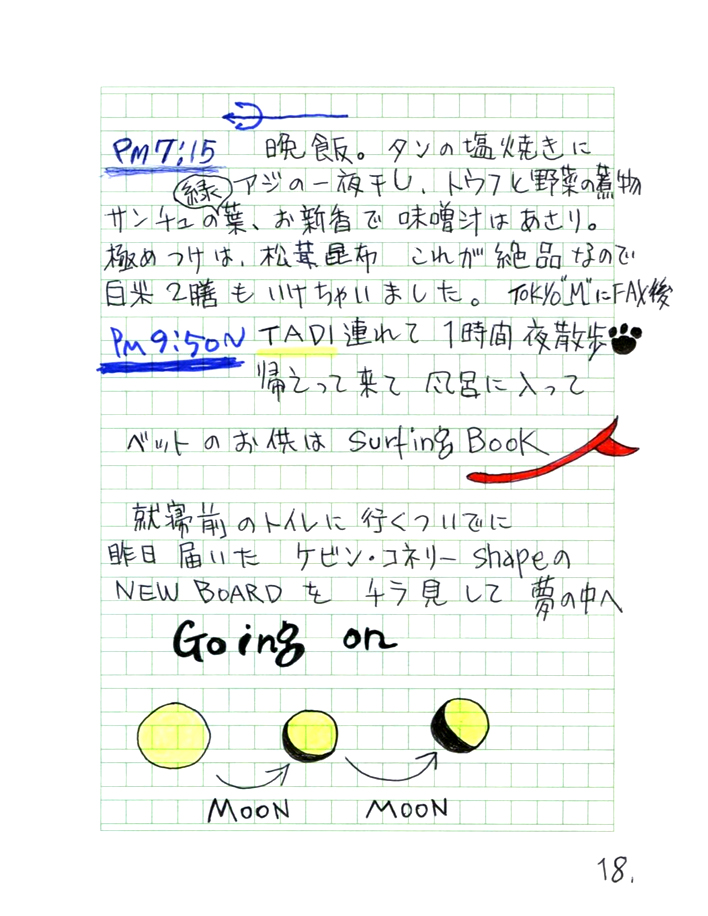 PM7:15 晩飯。タンの塩焼きに
アジの一夜干し、トウフと野菜の煮物
サンチュの緑葉、お新香で味噌汁はあさり。
極めつけは、松葉昆布 これが絶品なので
白米2膳もいけちゃいました。TOKYO"M"にFAX後
PM9:50N TADI連れて1時間夜散歩
帰えって来て風呂に入って
ベットのお供は Surfing BOOK
就寝前のトイレに行くついでに
昨日届いた ケビン・コネリー shapeの
NEW BOARDを チラ見して 夢の中へ
Going on
MOON MOON
18.